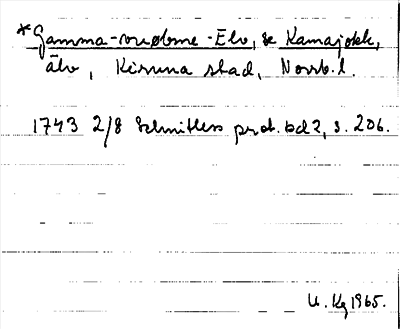 *Gamma-vuobme-Elv, se Kamajokk,
älv, Kiruna stad, Norrb. l.
1743 2/8 Schnitlers prot. bd 2, s. 206.
U. Kg 1965.